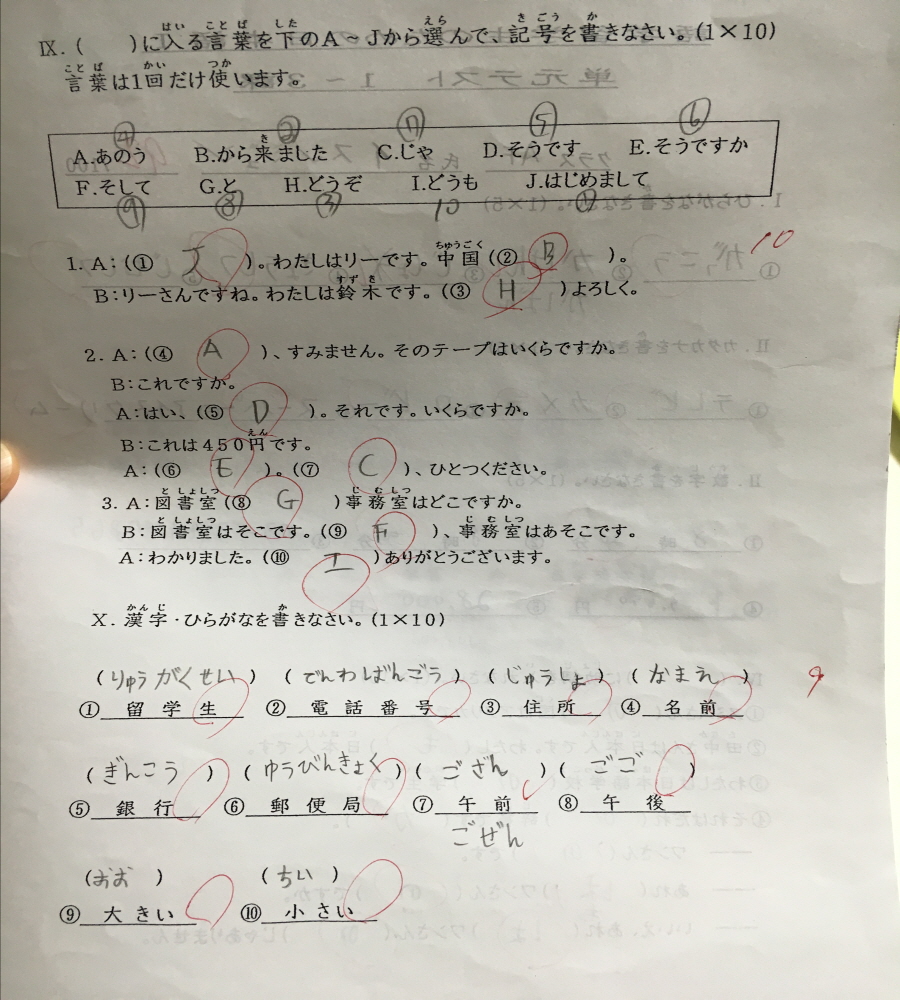 Ⅸ. (　　)に入る言葉を下のA～Jから選んで、記号を書きなさい。(1×10)
言葉は1回だけ使います。
④ ② ⑦ ⑤ ⑥
A.あのう　B.から来ました　C.じゃ　D.そうです　E.そうですか
F.そして　G.と　H.どうぞ　I.どうも　J.はじめまして
⑨ ⑧ ③ 10
10
1. A：(① J )。わたしはリーです。中国 (② B )。
B：リーさんですね。わたしは鈴木です。(③ H )よろしく。
2. A：(④ A )、すみません。そのテープはいくらですか。
B：これですか。
A：はい、(⑤ D )。それです。いくらですか。
B：これは450円です。
A：(⑥ E )。(⑦ C )、ひとつください。
3. A：図書室 (⑧ G )事務室はどこですか。
B：図書室はそこです。(⑨ F )、事務室はあそこです。
A：わかりました。(⑩ I )ありがとうございます。
Ⅹ. 漢字・ひらがなを書きなさい。(1×10)
9
(りゅうがくせい) (でんわばんごう) (じゅうしょ) (なまえ)
① 留学生　② 電話番号　③ 住所　④ 名前
(ぎんこう) (ゆうびんきょく) (ござん) (ごご)
⑤ 銀行　⑥ 郵便局　⑦ 午前　⑧ 午後
ごぜん
(おお) (ちい)
⑨ 大きい　⑩ 小さい